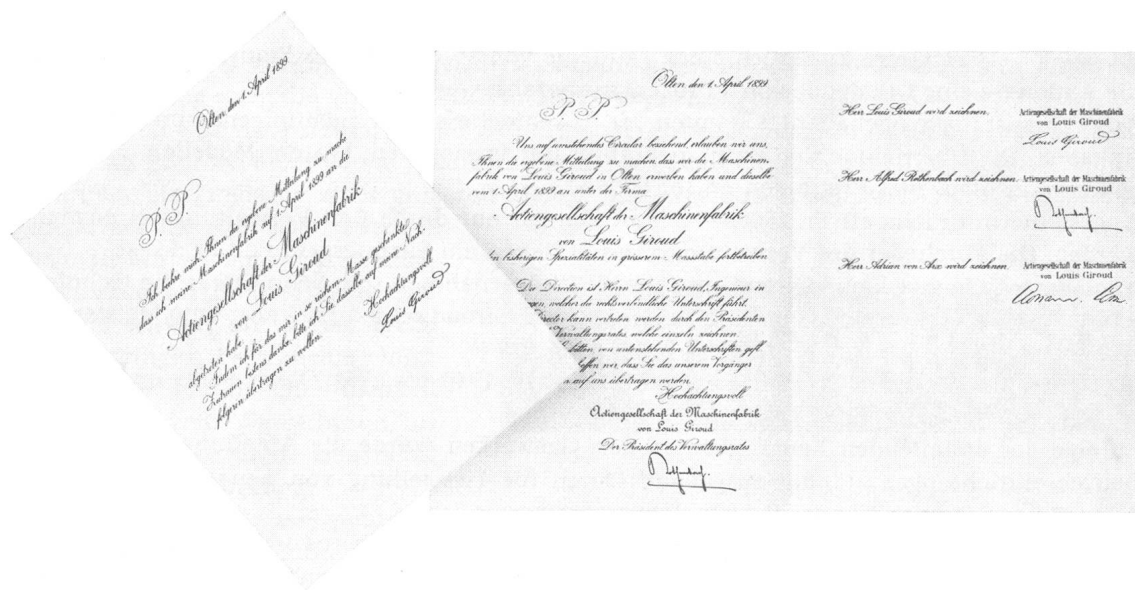 Olten, den 1. April 1899.
P. P.
Ich beehre mich Ihnen die ergebene Mitteilung zu machen
dass ich meine Maschinenfabrik auf 1. April 1899 an die
Actiengesellschaft der Maschinenfabrik
von Louis Giroud
abgetreten habe.
Indem ich für das mir in so reichem Masse geschenkte
Zutrauen bestens danke, bitte ich Sie dasselbe auf meine Nach-
folgerin übertragen zu wollen.
Hochachtungsvoll
Louis Giroud
Olten, den 1. April 1899.
P. P.
Uns auf umstehendes Circular beziehend, erlauben wir uns,
Ihnen die ergebene Mitteilung zu machen, dass wir die Maschinen-
fabrik von Louis Giroud in Olten erworben haben und dieselbe
vom 1. April 1899 an unter der Firma
Actiengesellschaft der Maschinenfabrik
von Louis Giroud
bisherigen Spezialitäten in grösserem Masstabe fortbetreiben
Die Direction ist Herrn Louis Giroud, Ingenieur in
welcher die rechtsverbindliche Unterschrift führt.
kann vertreten werden durch den Präsidenten
Verwaltungsrates, welche einzeln zeichnen.
bitten, von untenstehenden Unterschriften gefl.
hoffen wir, dass Sie das unserem Vorgänger
auf uns übertragen werden.
Hochachtungsvoll
Actiengesellschaft der Maschinenfabrik
von Louis Giroud
Der Präsident des Verwaltungsrates
Herr Louis Giroud wird zeichnen.
Actiengesellschaft der Maschinenfabrik
von Louis Giroud
Louis Giroud
Herr Alfred Rothenbach wird zeichnen.
Actiengesellschaft der Maschinenfabrik
von Louis Giroud
Herr Adrian von Arx wird zeichnen.
Actiengesellschaft der Maschinenfabrik
von Louis Giroud